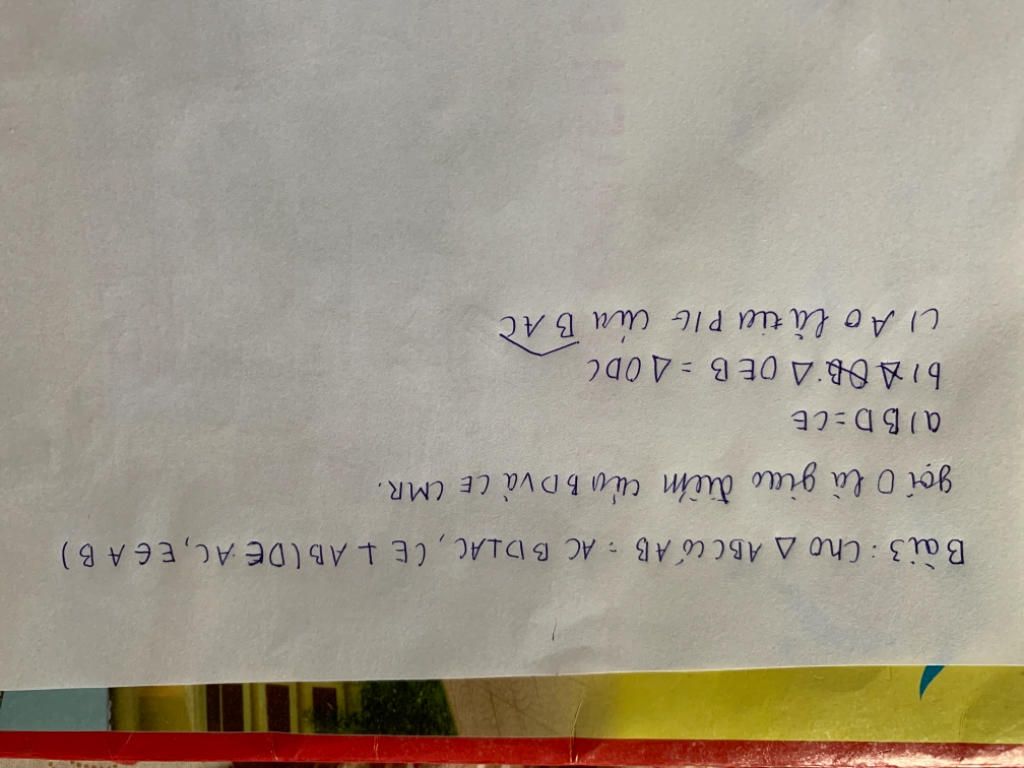 Bài 3: Cho △ ABC có AB = AC BD⊥AC, CE ⊥ AB (D∈ AC, E∈ AB)
gọi O là giao điểm của BD và CE CMR.
a) BD = CE
b) △ OEB = △ ODC
c) AO là tia P/G của BAC